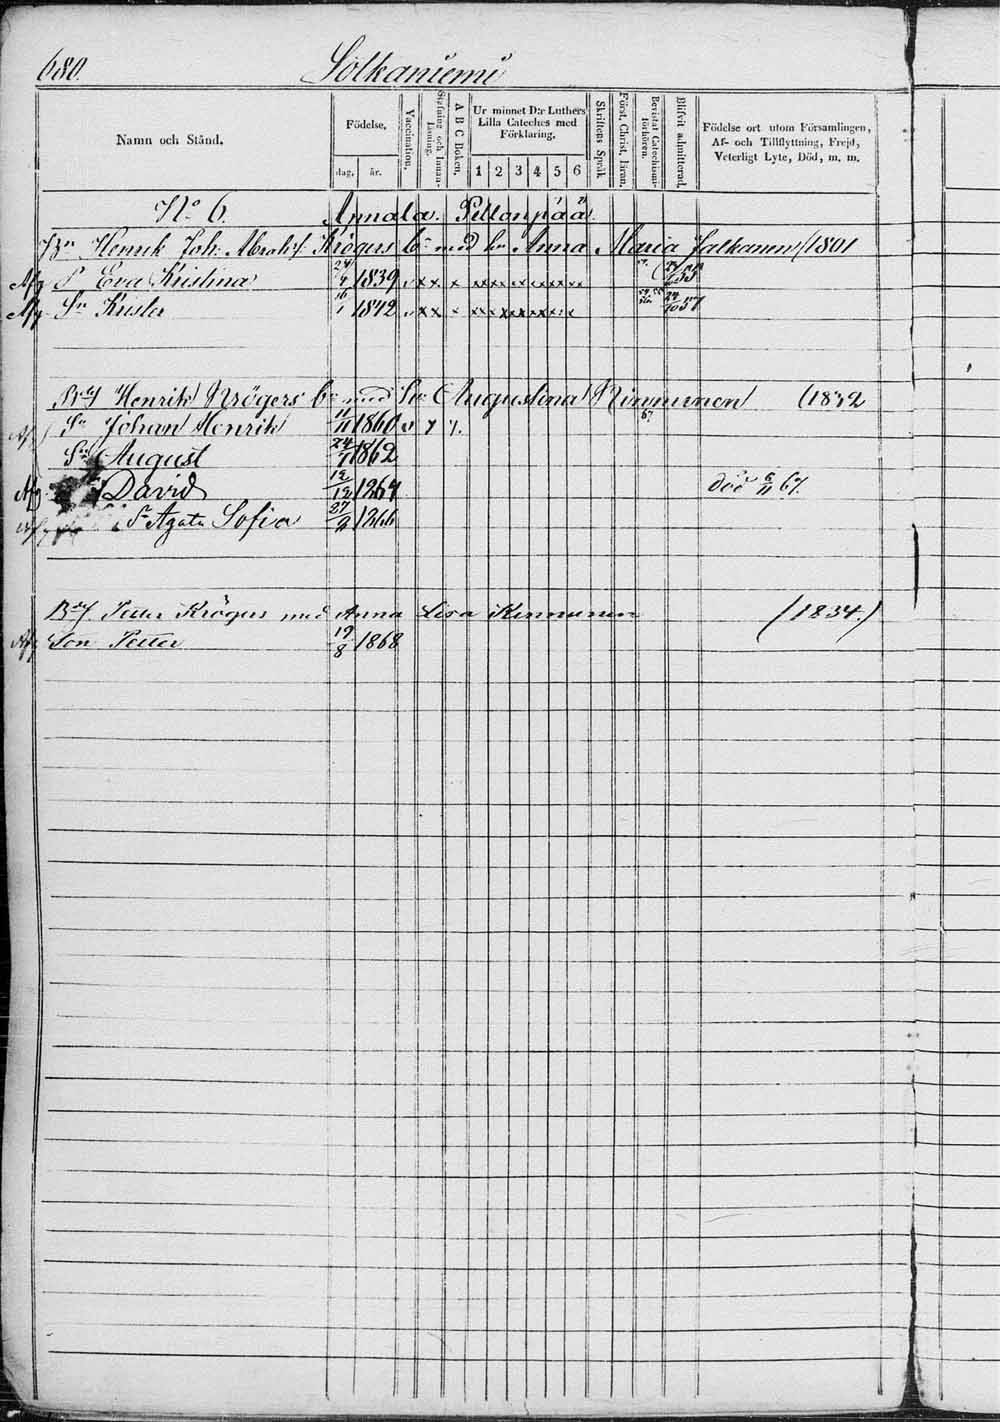 680. Solkaniemi
Namn och Stånd.
Födelse,
dag. år.
Vaccination.
Stafning och Innan-läsning.
A B C Boken.
Ur minnet D:r Luthers
Lilla Cateches med
Förklaring.
1 2 3 4 5 6
Skriftens Språk
Först. Christ. läran.
Bevistat Catechismi-förhören.
Blifvit admitterad.
Födelse ort utom Församlingen,
Af- och Tillflyttning, Frejd,
Veterligt Lyte, Död, m. m.
No 6. Annala. Pellonpää
Henrik Joh. Krögers med Anna Maria Jalkanen (1801
Afg Eva Kristina 24/9 1839 v x x x x x x x x x 55
Afg Sn Krister 16/1 1842 v x x x x x x x x x 24/10 57
Henrik Krögers med hu Augustina Kinnunen (1832
Sn Johan Henrik 11/11 1860 v
Sn August 24/1 1862
Afg David 12/12 1864 död 6/11 67.
Agata Sofia 27/9 1866
Petter Krögers med Anna Lisa Kinnunen (1834.)
Afg Son Petter 19/8 1868